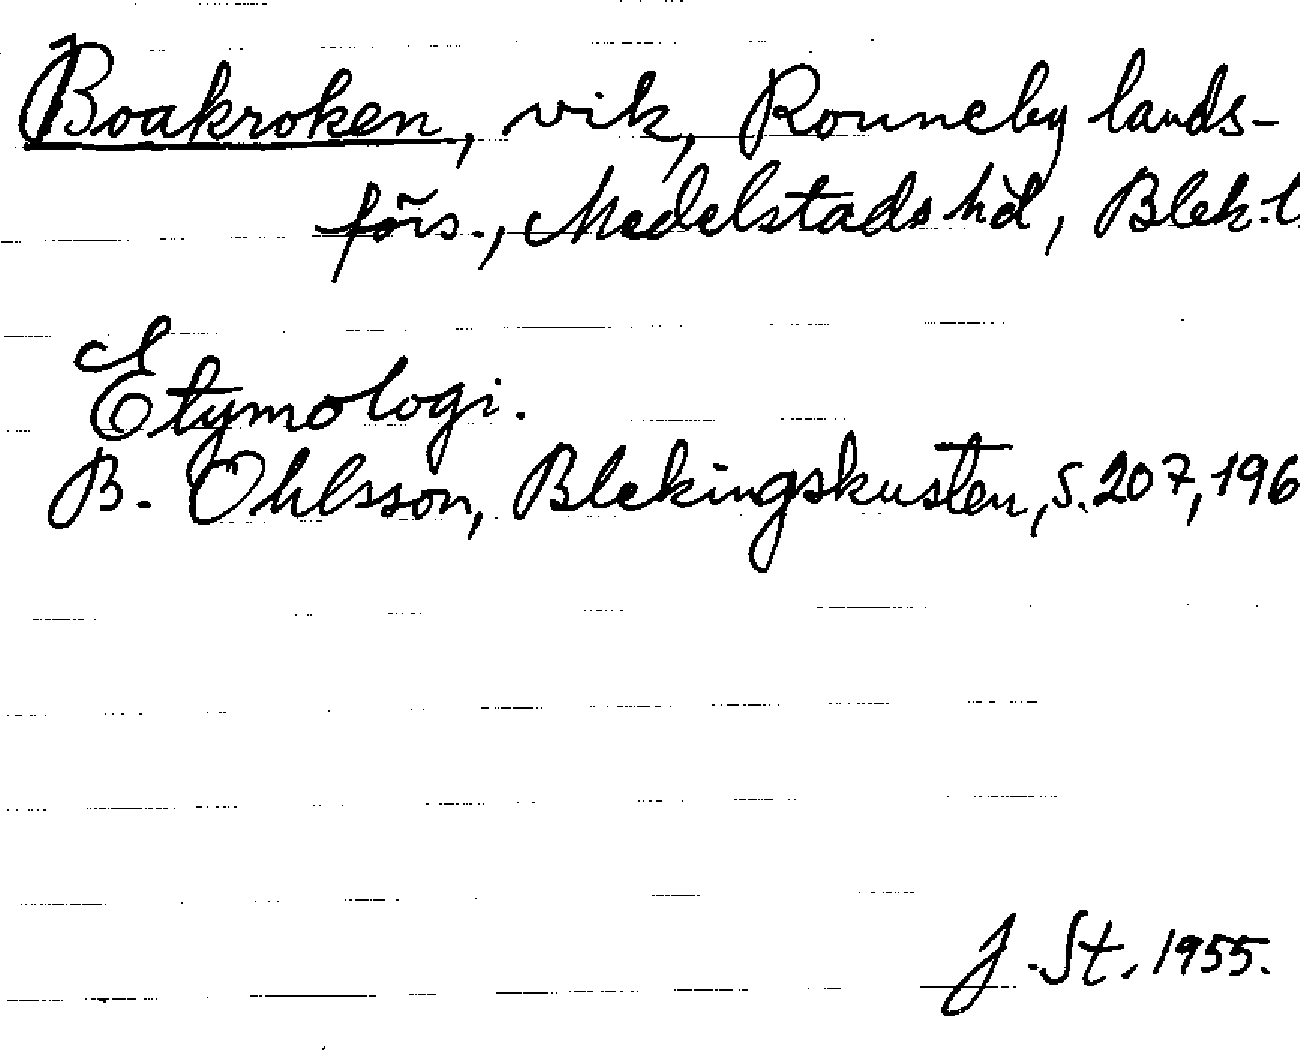 Boakroken, vik, Ronneby lands-
förs., Medelstads hd, Blek. l.
Etymologi.
B. Ohlsson, Blekingskusten, s. 207, 196
J. St. 1955.